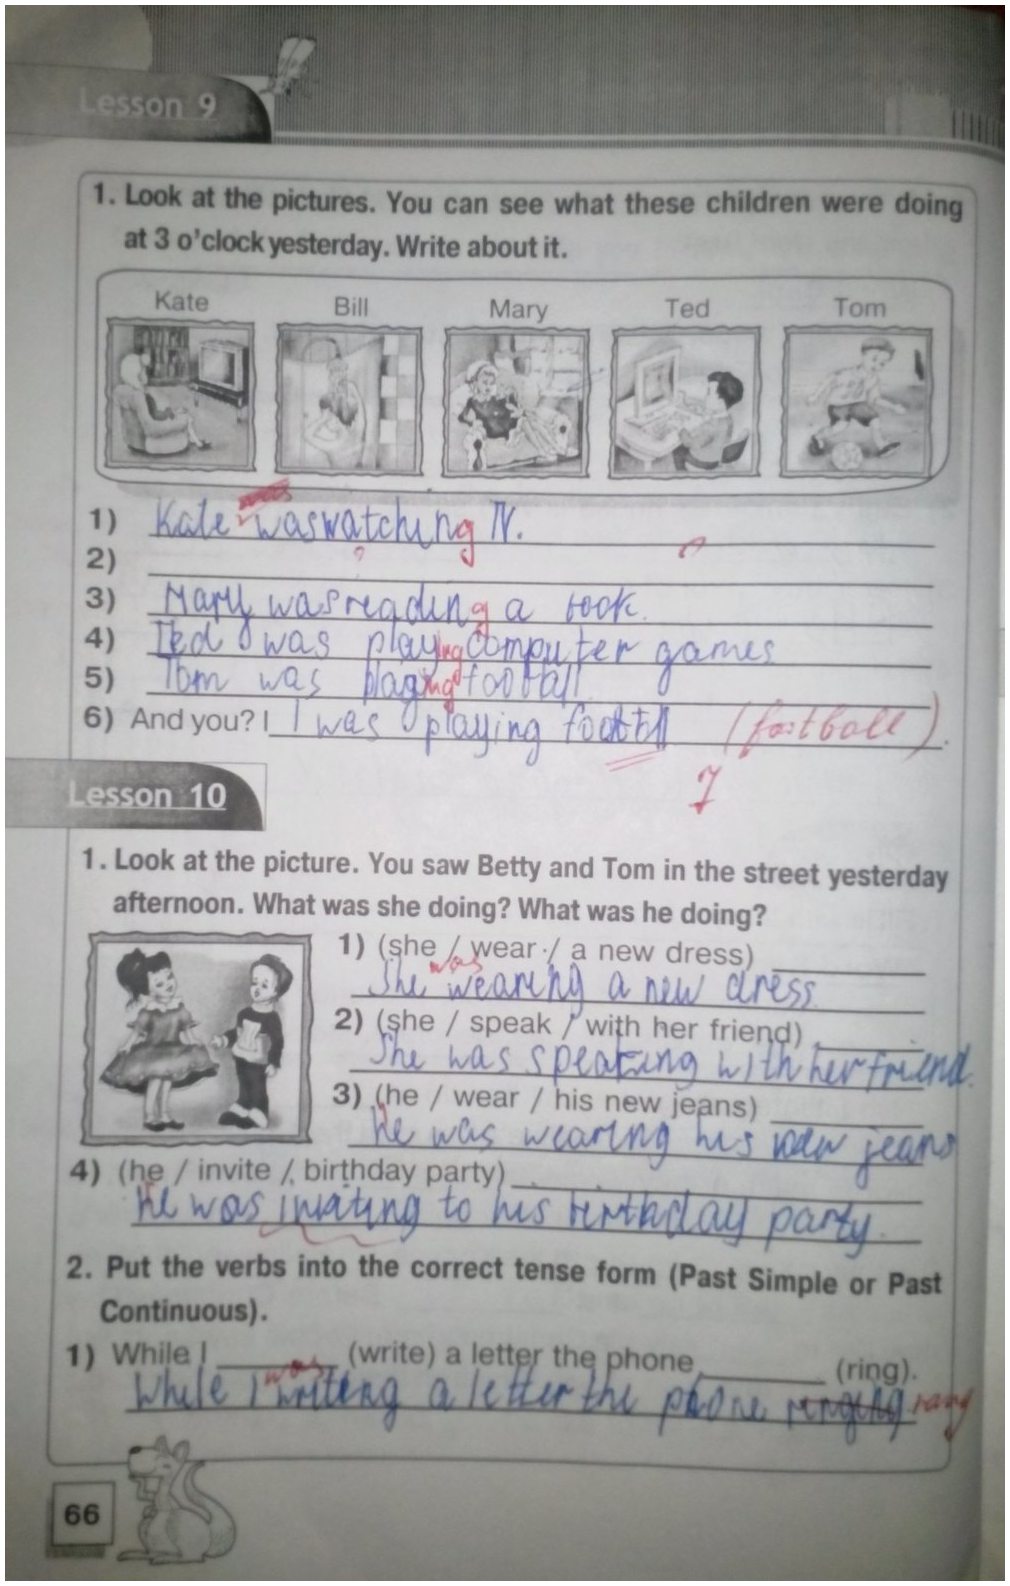 Lesson 9
1. Look at the pictures. You can see what these children were doing
at 3 o'clock yesterday. Write about it.
Kate Bill Mary Ted Tom
was
1) Kate was watching TV.
2)
3) Mary was reading a book.
4) Ted was playing computer games
5) Tom was playing football
6) And you? I I was playing footbll (football).
7
Lesson 10
1. Look at the picture. You saw Betty and Tom in the street yesterday
afternoon. What was she doing? What was he doing?
1) (she / wear / a new dress)
was
She wearing a new dress.
2) (she / speak / with her friend)
She was speaking with her friend.
3) (he / wear / his new jeans)
he was wearing his new jeans
4) (he / invite / birthday party)
he was inviting to his birthday party.
2. Put the verbs into the correct tense form (Past Simple or Past
Continuous).
1) While I (write) a letter the phone (ring).
was
While I writing a letter the phone ringing rang
66